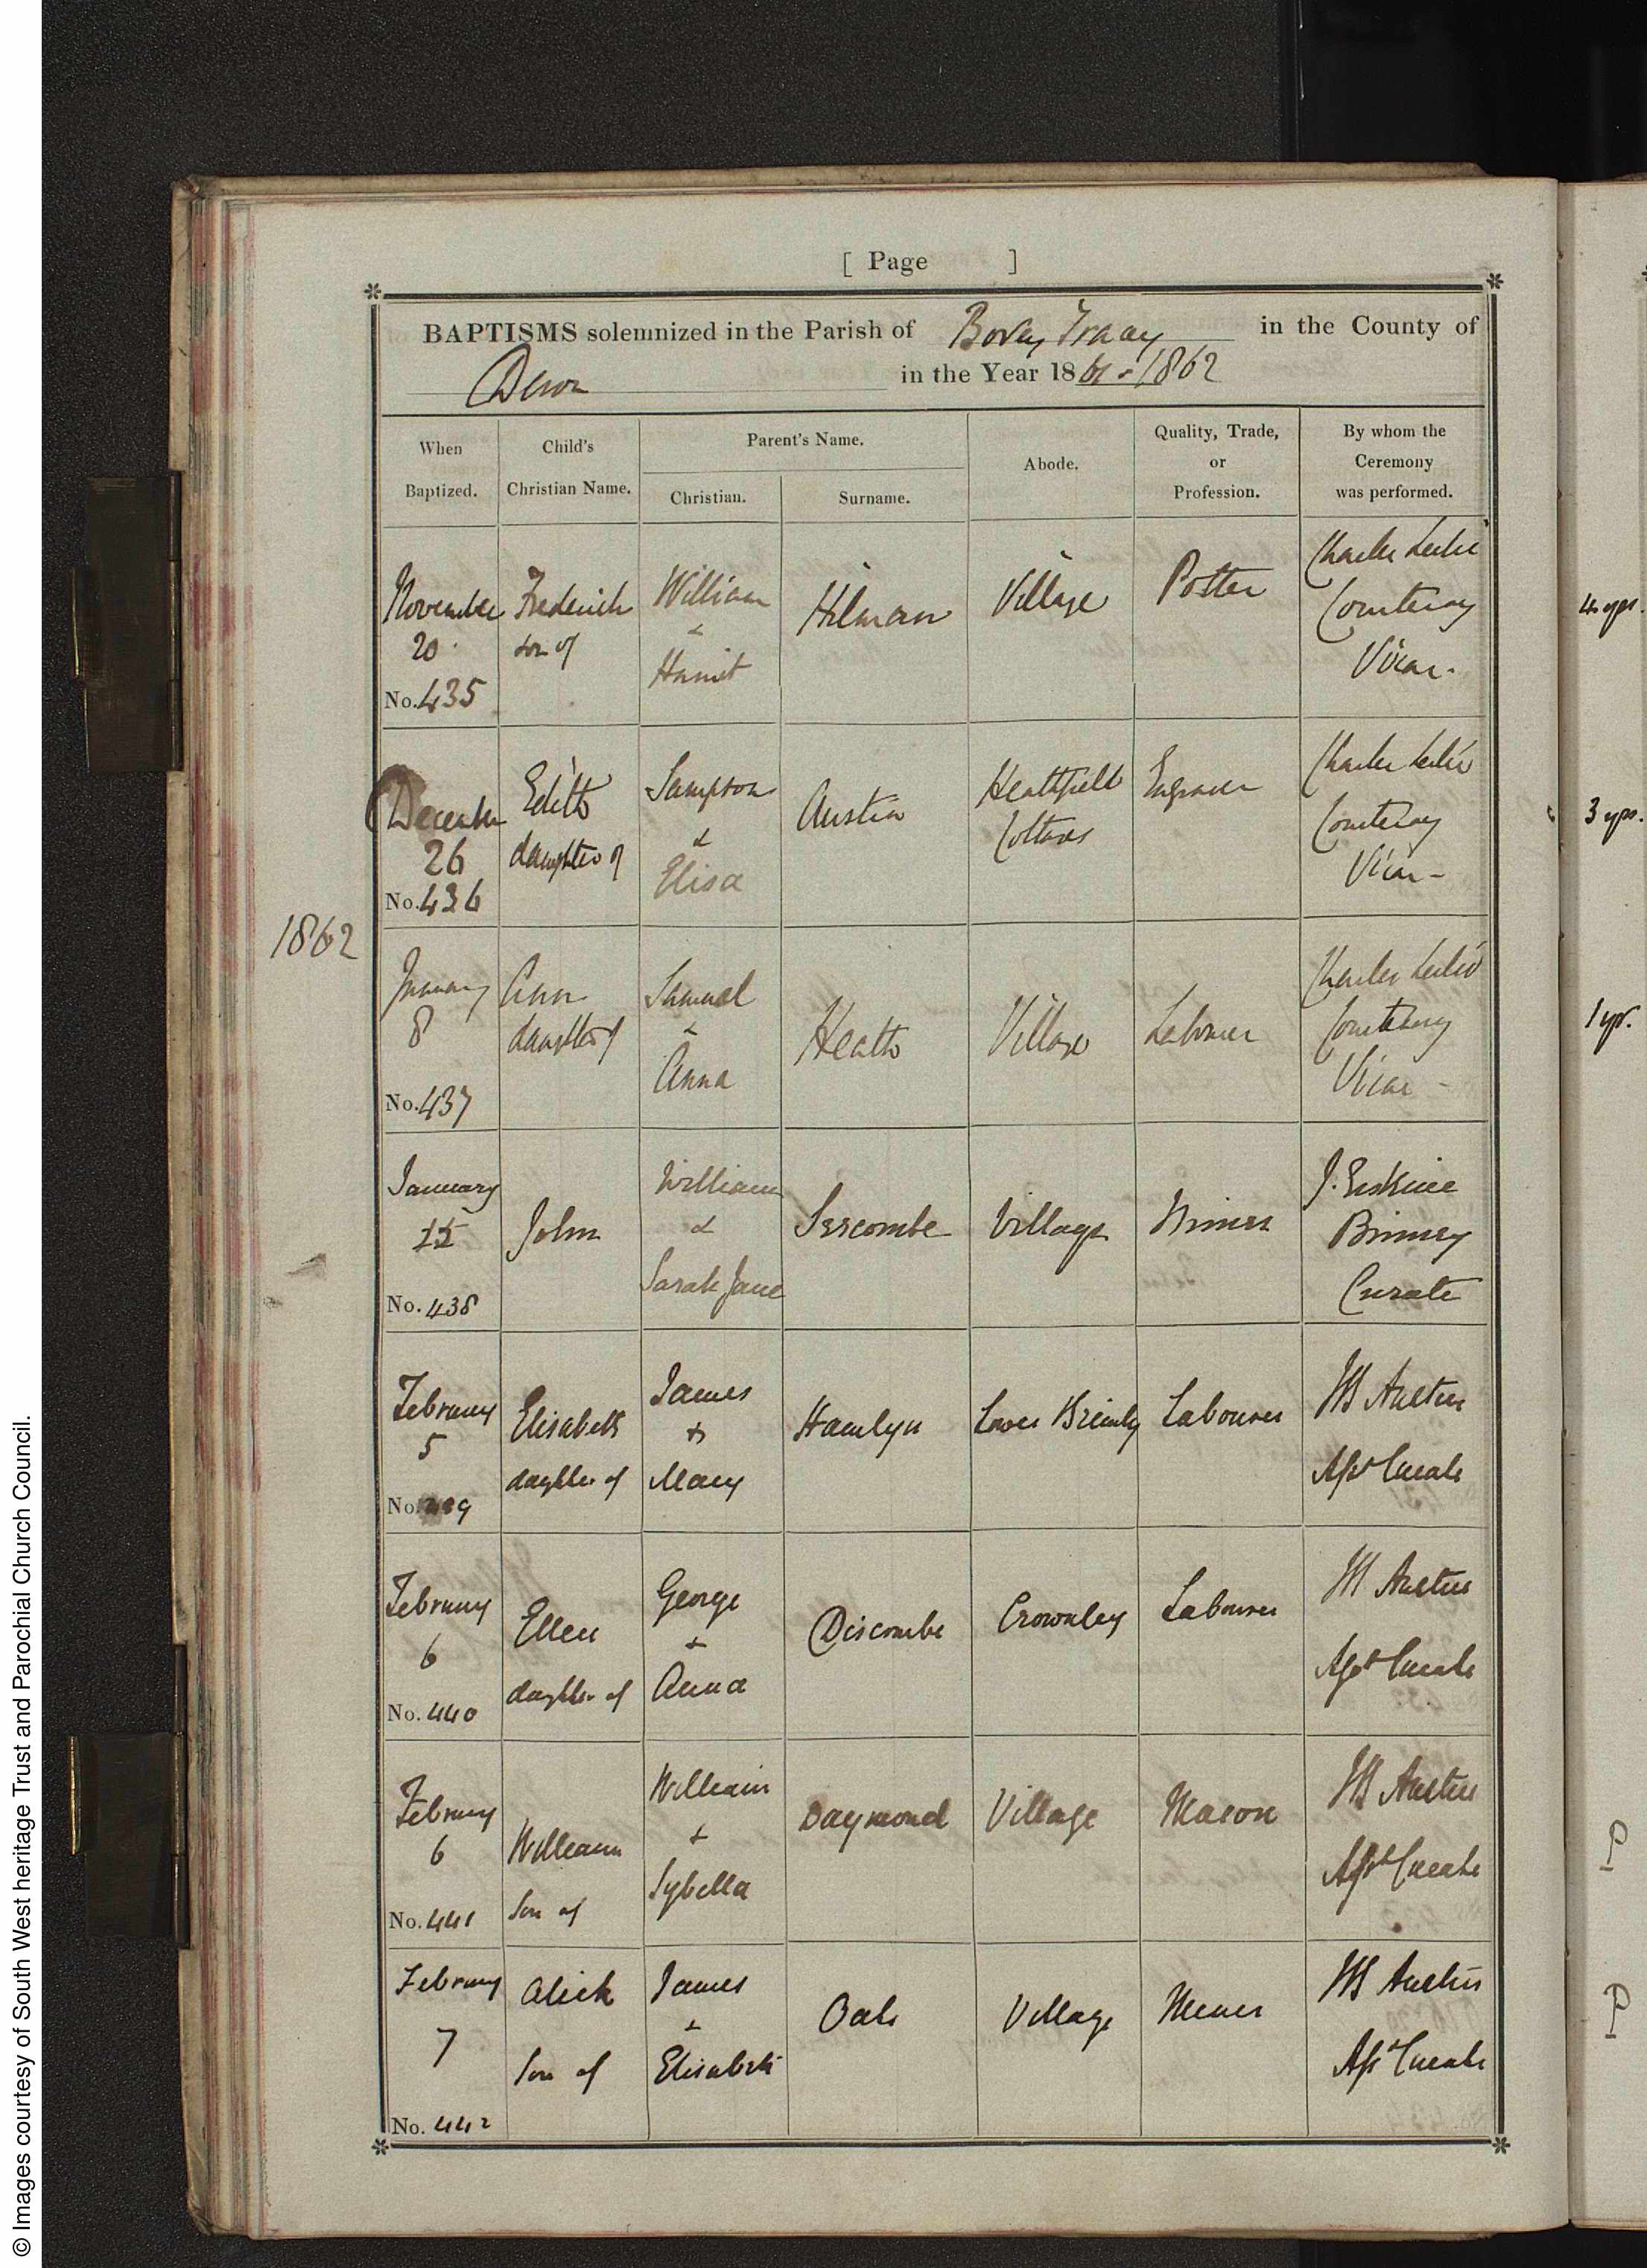 [ Page ]
BAPTISMS solemnized in the Parish of Bovey Tracey in the County of
Devon in the Year 1861 - 1862
When Baptized.
Child's Christian Name.
Parent's Name.
Christian.
Surname.
Abode.
Quality, Trade, or Profession.
By whom the Ceremony was performed.
November 20
No. 435
Frederick son of
William & Harriet
Hilman
Village
Potter
Charles Leslie Courtenay Vicar.
4 yrs.
December 26
No. 436
Edith daughter of
Sampson & Elisa
Austin
Heathfield Cottages
Engraver
Charles Leslie Courtenay Vicar -
3 yrs.
1862
January 8
No. 437
Ann daughter of
Samuel & Anna
Heath
Village
Labourer
Charles Leslie Courtenay Vicar -
1 yr.
January 15
No. 438
John
William & Sarah Jane
Village
Miner
J. Erskine Binney Curate
February 5
No. 439
Elisabeth daughter of
James & Mary
Hamlyn
Lower Brimly
Labourer
Austin Asst Curate
February 6
No. 440
Ellen daughter of
George & Anna
Discombe
Crownley
Labourer
Austin Asst Curate
February 6
No. 441
William Son of
William & Sybella
Daymond
Village
Mason
Austin Asst Curate
P
February 7
No. 442
Alick Son of
James & Elisabeth
Village
Miner
Austin Asst Curate
P
© Images courtesy of South West heritage Trust and Parochial Church Council.